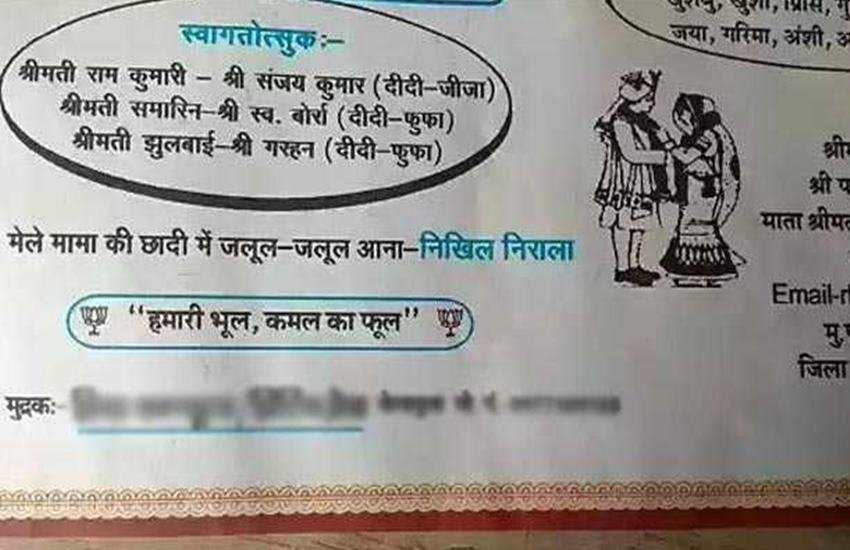 स्वागतोत्सुकः–
श्रीमती राम कुमारी – श्री संजय कुमार (दीदी–जीजा)
श्रीमती समारिन–श्री स्व. बोर्रा (दीदी–फुफा)
श्रीमती झुलबाई–श्री गरहन (दीदी–फुफा)
मेले मामा की छादी में जलूल–जलूल आना–निखिल निराला
"हमारी भूल, कमल का फूल"
मुद्रकः–
जया, गरिमा, अंशी,
माता
Email-
जिला